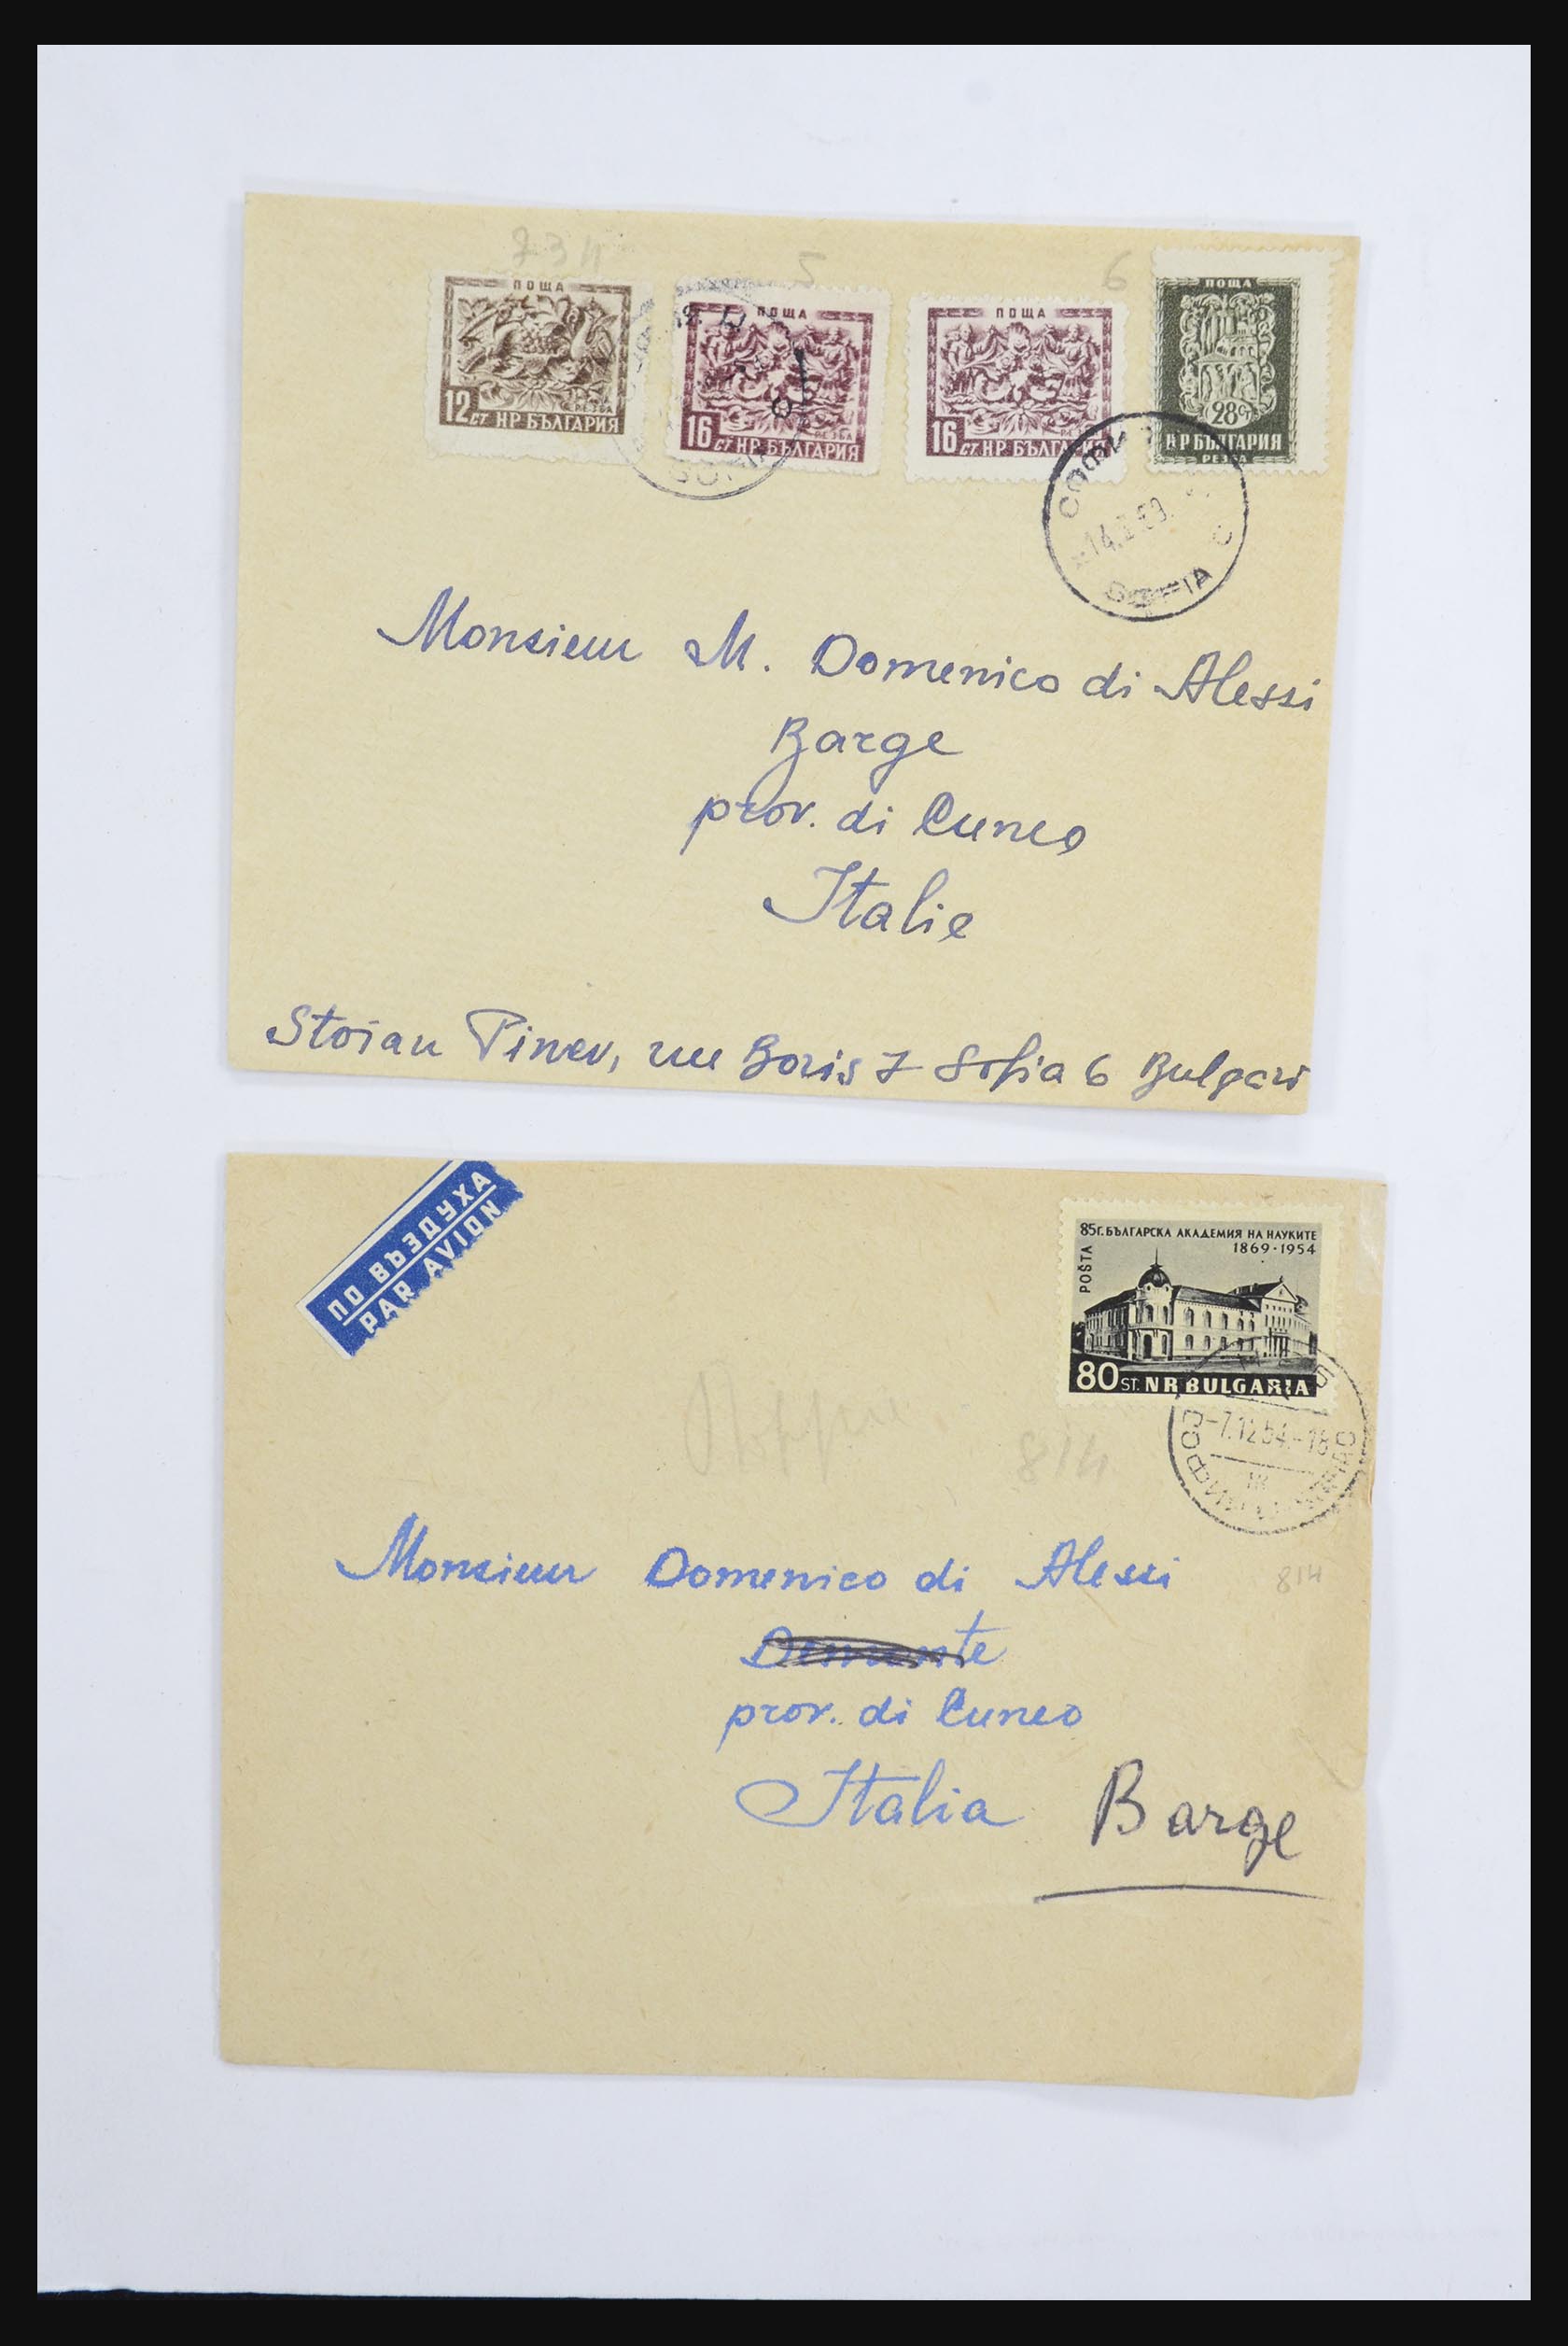 734
5
6
ПОЩА
12 СТ НР БЪЛГАРИЯ
РЕЗБА
ПОЩА
16 СТ НР БЪЛГАРИЯ
РЕЗБА
ПОЩА
16 СТ НР БЪЛГАРИЯ
РЕЗБА
ПОЩА
28 СТ
НР БЪЛГАРИЯ
РЕЗБА
SOFIA
Monsieur M. Domenico di Alessi
Barge
prov. di Cuneo
Italie
Stoian Pinev, rue Boris 7 Sofia 6 Bulgari
ПО ВЪЗДУХА
PAR AVION
85Г. БЪЛГАРСКА АКАДЕМИЯ НА НАУКИТЕ
1869·1954
POŠTA
80 ST. NR BULGARIA
-7.12.54.-18
СОФИЯ
814
Monsieur Domenico di Alessi
814
prov. di Cuneo
Italia Barge